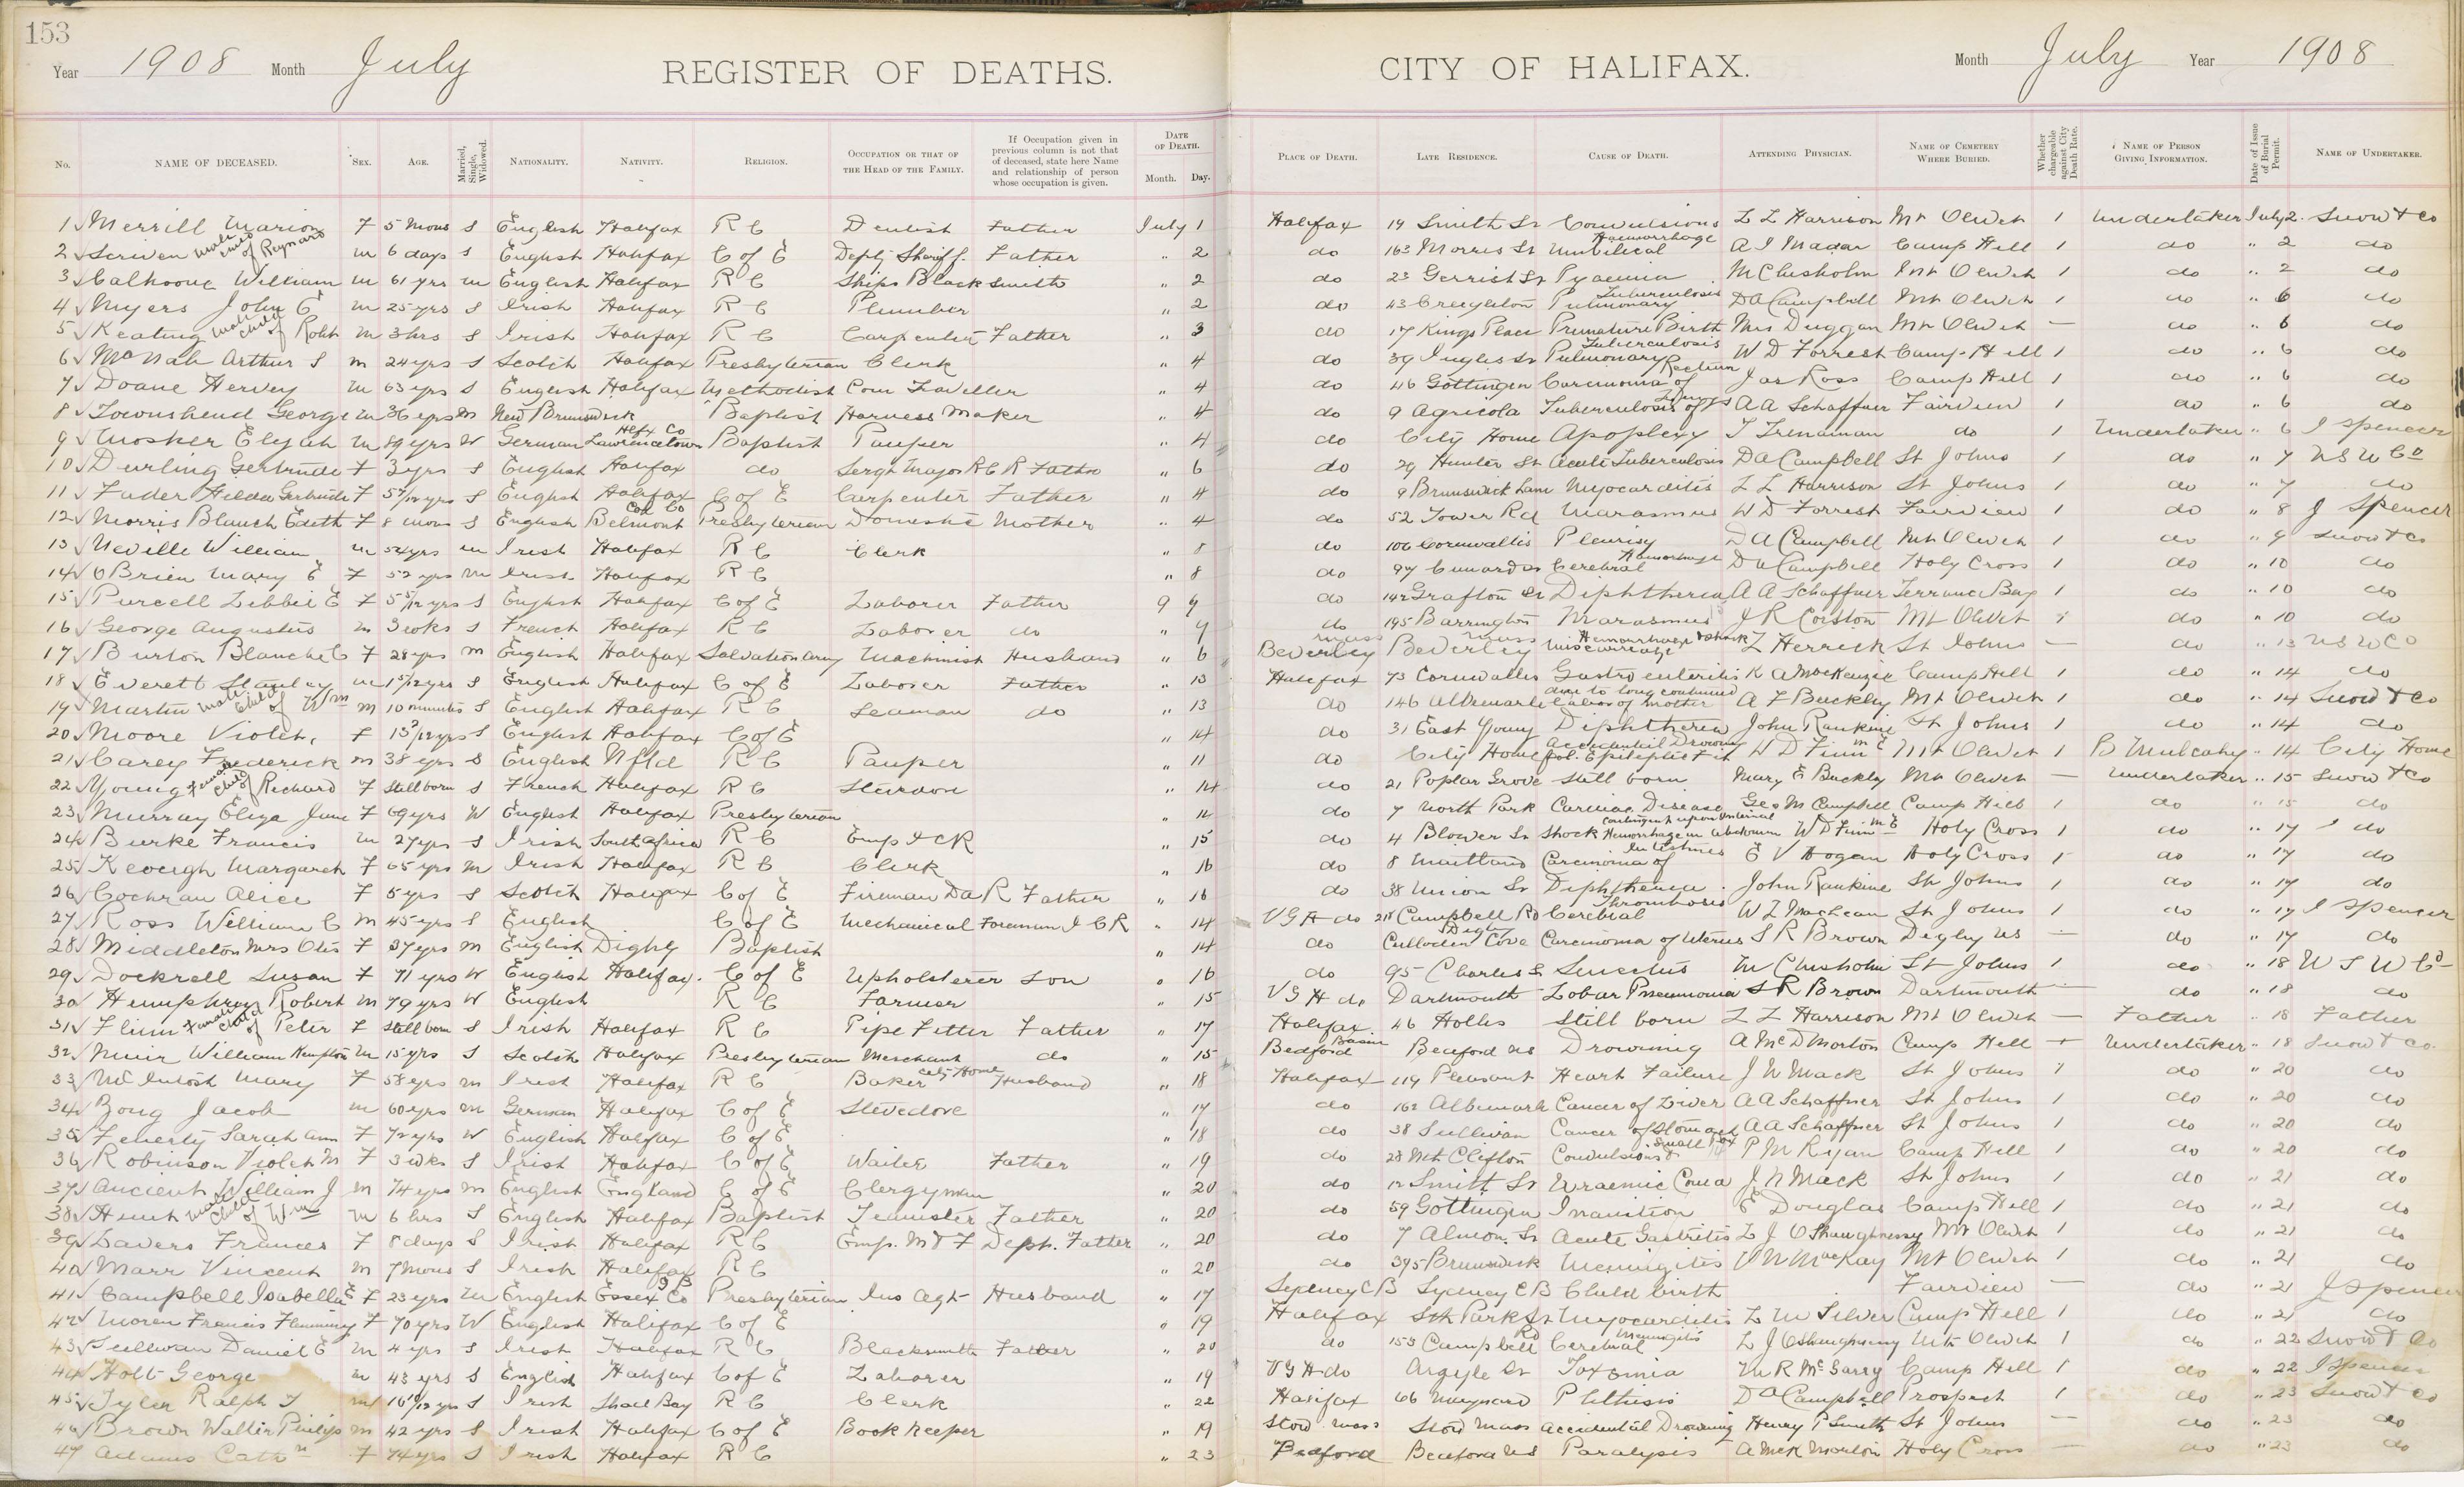 153
Year 1908 Month July REGISTER OF DEATHS. CITY OF HALIFAX. Month July Year 1908
No. NAME OF DECEASED. SEX. AGE. Married, Single, Widowed. NATIONALITY. NATIVITY. RELIGION. OCCUPATION OR THAT OF THE HEAD OF THE FAMILY. If Occupation given in previous column is not that of deceased, state here Name and relationship of person whose occupation is given. DATE OF DEATH. Month. Day. PLACE OF DEATH. LATE RESIDENCE. CAUSE OF DEATH. ATTENDING PHYSICIAN. NAME OF CEMETERY WHERE BURIED. Whether chargeable against City Death Rate. NAME OF PERSON GIVING INFORMATION. Date of Issue of Burial Permit. NAME OF UNDERTAKER.
1 Merrill Marion F 5 Mons S English Halifax R C Dentist Father July 1 Halifax 19 Smith St Convulsions L L Harrison Mt Olivet 1 Undertaker July 2 Snow & Co
2 Scriven male child of Reynard M 6 days S English Halifax C of E Depty Sheriff Father " 2 do 163 Morris St Umbilical Haemorrhage A I Madar Camp Hill 1 do " 2 do
3 Calhoune William M 61 yrs M English Halifax R C Ships Blacksmith " 2 do 23 Gerrish St Pyaemia M Chisholm Mt Olivet 1 do " 2 do
4 Myers John E M 25 yrs S Irish Halifax R C Plumber " 2 do 43 Creighton Pulmonary Tuberculosis D A Campbell Mt Olivet 1 do " 6 do
5 Keating male child of Robt M 3 hrs S Irish Halifax R C Carpenter Father " 3 do 17 Kings Place Premature Birth Mrs Duggan Mt Olivet — do " 6 do
6 McNab Arthur S M 24 yrs S Scotch Halifax Presbyterian Clerk " 4 do 39 Inglis St Pulmonary Tuberculosis W D Forrest Camp Hill 1 do " 6 do
7 Doane Hervey M 63 yrs S English Halifax Methodist Com Traveller " 4 do 46 Gottingen Carcinoma of Rectum Jas Ross Camp Hill 1 do " 6 do
8 Townshend George M 36 yrs M New Brunswick Baptist Harness Maker " 4 do 9 Agricola Tuberculosis of Lungs A A Schaffner Fairview 1 do " 6 do
9 Mosher Elijah M 89 yrs W German Lawrencetown Hfx Co Baptist Pauper " 4 do City Home Apoplexy T Trenaman do 1 Undertaker " 6 J Spencer
10 Durling Gertrude F 3 yrs S English Halifax do Sergt Major R C R Father " 6 do 29 Hunter St Acute Tuberculosis D A Campbell St Johns 1 do " 7 N S U Co
11 Fader Hilda Gertrude F 5 7/12 yrs S English Halifax C of E Carpenter Father " 4 do 9 Brunswick Lane Myocarditis L L Harrison St Johns 1 do " 7 do
12 Morris Blanch Edith F 8 Mons S English Belmont Col Co Presbyterian Domestic Mother " 4 do 52 Tower Rd Marasmus W D Forrest Fairview 1 do " 8 J Spencer
13 Neville William M 54 yrs M Irish Halifax R C Clerk " 8 do 106 Cornwallis Pleurisy D A Campbell Mt Olivet 1 do " 9 Snow & Co
14 O'Brien Mary E F 52 yrs M Irish Halifax R C " 8 do 97 Cunard St Cerebral Hemorrhage D A Campbell Holy Cross 1 do " 10 do
15 Purcell Libbie E F 5 5/12 yrs S English Halifax C of E Laborer Father 9 9 do 142 Grafton St Diphtheria A A Schaffner Terrance Bay 1 do " 10 do
16 George Augustus M 3 wks S French Halifax R C Laborer do " 9 do 195 Barrington Marasmus J R Corston Mt Olivet 1 do " 10 do
17 Burton Blanche C F 28 yrs M English Halifax Salvation Army Machinist Husband " 6 Beverley Mass Beverley Mass Miscarriage Hemorrhage & Shock L Herrick St Johns — do " 13 N S U Co
18 Everett Stanley M 1 5/12 yrs S English Halifax C of E Laborer Father " 13 Halifax 73 Cornwallis Gastro enteritis K A MacKenzie Camp Hill 1 do " 14 do
19 Martin male child of Wm M 10 minutes S English Halifax R C Seaman do " 13 do 146 Albemarle due to long continued labor of mother A F Buckley Mt Olivet 1 do " 14 Snow & Co
20 Moore Violet F 13/12 yrs S English Halifax C of E " 14 do 31 East Young Diphtheria John Rankine St Johns 1 do " 14 do
21 Carey Frederick M 38 yrs S English Nfld R C Pauper " 11 do City Home Accidental Drowning fol. Epileptic Fit W D Finn M E Mt Olivet 1 P Mulcahy " 14 City Home
22 Young female child of Richard F Stillborn S French Halifax R C Steward " 14 do 21 Poplar Grove Still born Mary E Buckley Mt Olivet — Undertaker " 15 Snow & Co
23 Murray Eliza Jane F 69 yrs W English Halifax Presbyterian " 14 do 7 North Park Cardiac Disease Geo M Campbell Camp Hill 1 do " 15 do
24 Burke Francis M 27 yrs S Irish South Africa R C Emp I C R " 15 do 4 Blower St Shock contingent upon Internal Hemorrhage in Abdomen W D Finn M E Holy Cross 1 do " 17 do
25 Keough Margaret F 65 yrs M Irish Halifax R C Clerk " 16 do 8 Maitland Carcinoma of Intestines E V Hogan Holy Cross 1 do " 17 do
26 Cochran Alice F 5 yrs S Scotch Halifax C of E Fireman D A R Father " 16 do 38 Union St Diphtheria John Rankine St Johns 1 do " 17 do
27 Ross William C M 45 yrs S English C of E Mechanical Foreman I C R " 14 V G H do 218 Campbell Rd Cerebral Thrombosis W L MacLean St Johns 1 do " 17 J Spencer
28 Middleton Mrs Otis F 37 yrs M English Digby Baptist " 14 do Culloden Cove Digby Carcinoma of Uterus S R Brown Digby NS — do " 17 do
29 Dockrell Susan F 71 yrs W English Halifax C of E Upholsterer Son " 16 do 95 Charles St Senectus M Chisholm St Johns 1 do " 18 N S U Co
30 Humphrey Robert M 79 yrs W English R C Farmer " 15 V G H do Dartmouth Lobar Pneumonia S R Brown Dartmouth — do " 18 do
31 Flinn female child of Peter F Still born S Irish Halifax R C Pipe Fitter Father " 17 Halifax 46 Hollis Still born L L Harrison Mt Olivet — Father " 18 Father
32 Muir William Kempton M 15 yrs S Scotch Halifax Presbyterian Merchant do " 15 Bedford Basin Bedford NS Drowning A McD Morton Camp Hill + Undertaker " 18 Snow & Co
33 McIntosh Mary F 58 yrs M Irish Halifax R C Baker City Home Husband " 18 Halifax 119 Pleasant Heart Failure J N Mack St Johns 1 do " 20 do
34 Zong Jacob M 60 yrs M German Halifax C of E Stevedore " 17 do 162 Albemarle Cancer of Liver A A Schaffner St Johns 1 do " 20 do
35 Fenerty Sarah Ann F 72 yrs W English Halifax C of E " 18 do 38 Sullivan Cancer of Stomach A A Schaffner St Johns 1 do " 20 do
36 Robinson Violet M F 3 wks S Irish Halifax C of E Waiter Father " 19 do 28 Mt Clifton Convulsions & Small Pox P M Ryan Camp Hill 1 do " 20 do
37 Ancient William J M 74 yrs M English England C of E Clergyman " 20 do 12 Smith St Uraemic Coma J N Mack St Johns 1 do " 21 do
38 Hunt male child of Wm M 6 hrs S English Halifax Baptist Teamster Father " 20 do 59 Gottingen Inanition E Douglas Camp Hill 1 do " 21 do
39 Lavers Frances F 8 days S Irish Halifax R C Emp. M & F Dept. Father " 20 do 7 Almon St Acute Gastritis L J O'Shaughnessy Mt Olivet 1 do " 21 do
40 Marr Vincent M 7 Mons S Irish Halifax R C " 20 do 395 Brunswick Meningitis V N MacKay Mt Olivet 1 do " 21 do
41 Campbell Isabella E F 23 yrs M English Essex Co Presbyterian Ins Agt Husband " 17 Sydney C B Sydney C B Child birth Fairview — do " 21 J Spencer
42 Moren Francis Flemming F 70 yrs W English Halifax C of E " 19 Halifax Sth Park St Myocarditis L M Silver Camp Hill 1 do " 21 do
43 Sullivan Daniel E M 4 yrs S Irish Halifax R C Blacksmith Father " 20 do 153 Campbell Rd Cerebral Meningitis L J O'Shaughnessy Mt Olivet 1 do " 22 Snow & Co
44 Holt George M 43 yrs S English Halifax C of E Laborer " 19 V G H do Argyle St Toxemia M R McGarry Camp Hill 1 do " 22 J Spencer
45 Tyler Ralph J M 16 10/12 yrs S Irish Shad Bay R C Clerk " 22 Halifax 66 Maynard Phthisis D A Campbell Prospect 1 do " 23 Snow & Co
46 Brown Walter Philips M 42 yrs S Irish Halifax C of E Book Keeper " 19 Stow Mass Stow Mass Accidental Drowning Henry P Smith St Johns — do " 23 do
47 Adams Cathn F 74 yrs S Irish Halifax R C " 23 Bedford Bedford NS Paralysis A McK Morton Holy Cross — do " 23 do